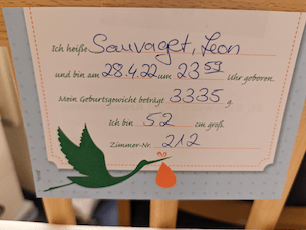 Ich heiße Sauvaget, Leon
und bin am 28.4.22 um 23 59 Uhr geboren.
Mein Geburtsgewicht beträgt 3335 g.
Ich bin 52 cm groß.
Zimmer-Nr. 212